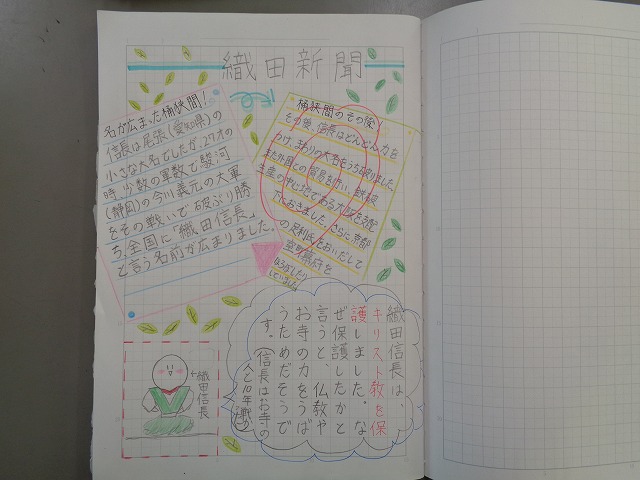 織田新聞
名が広まった桶狭間!
信長は尾張(愛知県)の
小さな大名でしたが、27才の
時、少数の軍数で駿河
(静岡)の今川義元の大軍
をその戦いで破ぶり勝
ち、全国に「織田信長」
と言う名前が広まりました。
桶狭間のその後
その後、信長はどんどん力を
つけ、まわりの大名をうち破りました。
また外国との貿易を行い、鉄ぽう
生産の中心地である大阪を支配
下におきました。さらに京都
の足利氏をおいだして
室町幕府を
ほろぼしたり
していました。
織田信長は、
キリスト教を保
護しました。な
ぜ保護したかと
言うと、仏教や
お寺の力をうば
うためだそうで
す。(信長はお寺の
人と10年戦
←織田信長